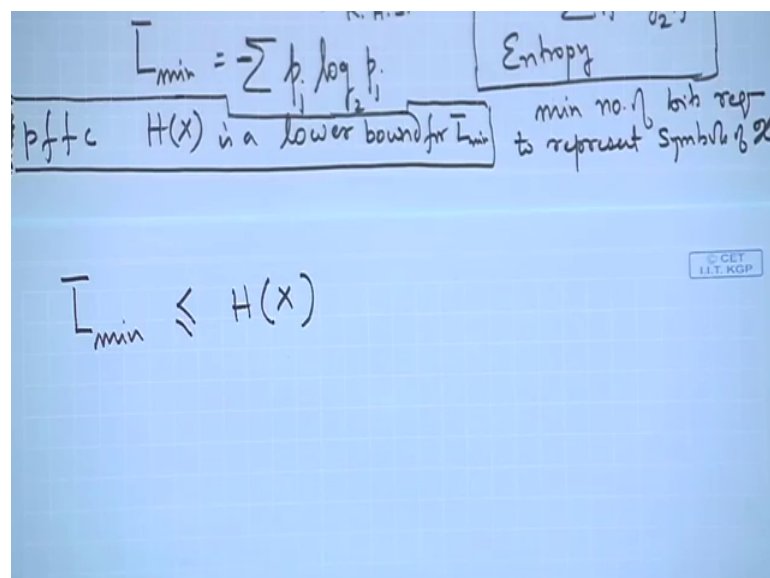 L̄min = -∑ pj log2 pj
Entropy
pffc H(X) is a lower bound for L̄min
min no. of bits req
to represent Symbols of X
© CET
I.I.T. KGP
L̄min ≤ H(X)